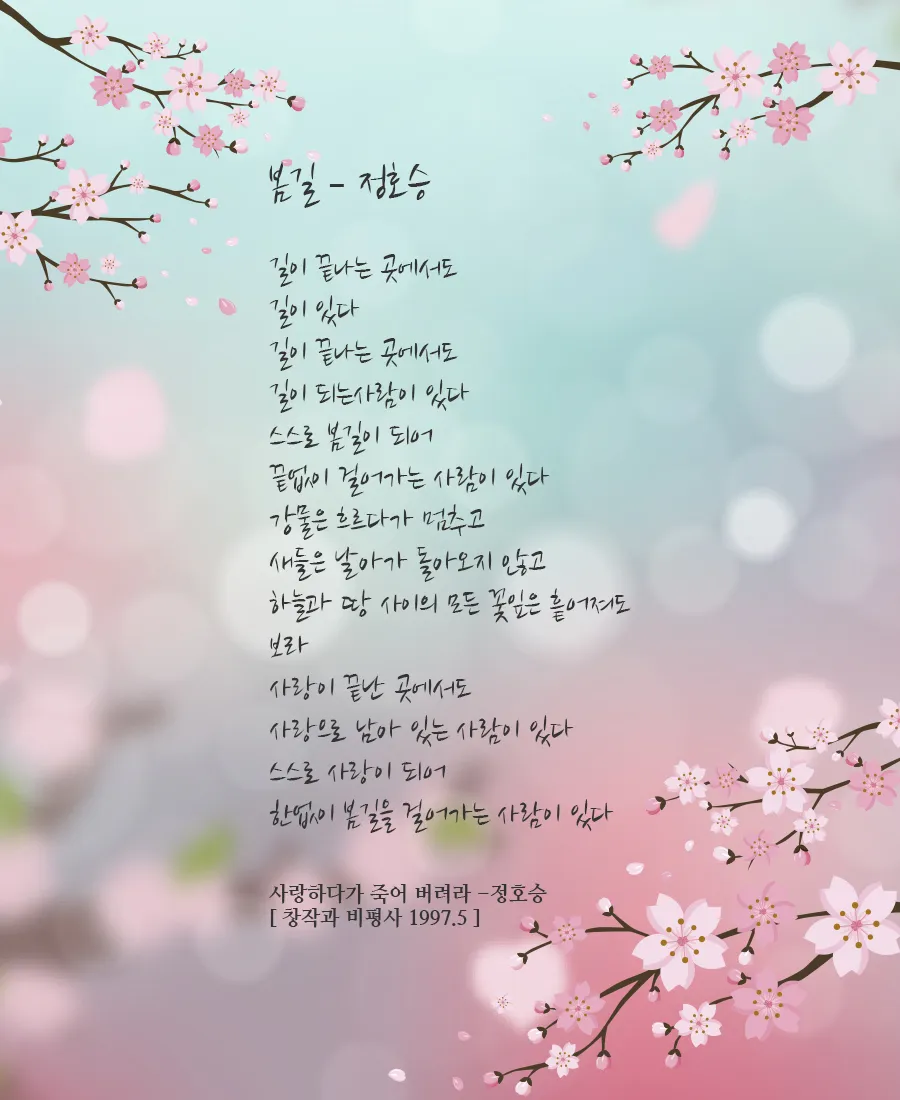 봄길 - 정호승
길이 끝나는 곳에서도
길이 있다
길이 끝나는 곳에서도
길이 되는사람이 있다
스스로 봄길이 되어
끝없이 걸어가는 사람이 있다
강물은 흐르다가 멈추고
새들은 날아가 돌아오지 않고
하늘과 땅 사이의 모든 꽃잎은 흩어져도
보라
사랑이 끝난 곳에서도
사랑으로 남아 있는 사람이 있다
스스로 사랑이 되어
한없이 봄길을 걸어가는 사람이 있다
사랑하다가 죽어 버려라 -정호승
[ 창작과 비평사 1997.5 ]